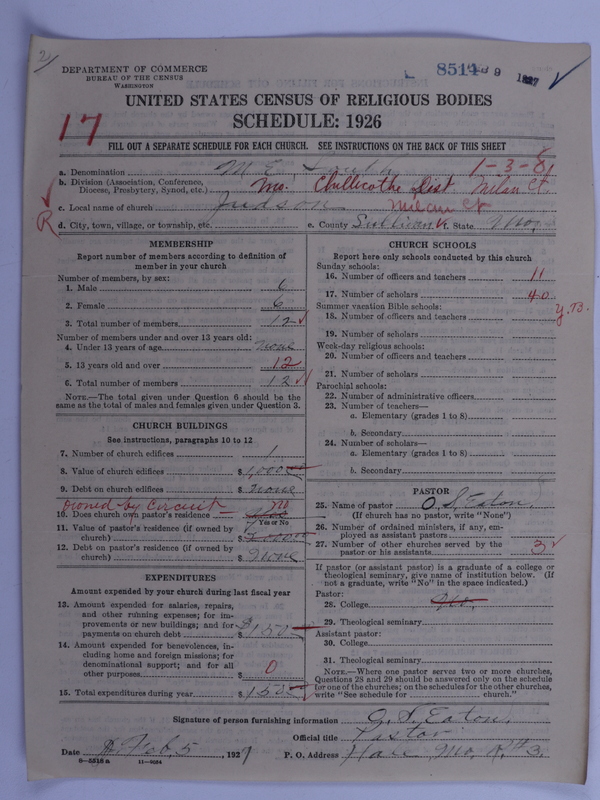 2/
DEPARTMENT OF COMMERCE
BUREAU OF THE CENSUS
WASHINGTON
8514 9 1927
UNITED STATES CENSUS OF RELIGIOUS BODIES
SCHEDULE: 1926
17
FILL OUT A SEPARATE SCHEDULE FOR EACH CHURCH. SEE INSTRUCTIONS ON THE BACK OF THIS SHEET
a. Denomination M. E. South 1-3-81
b. Division (Association, Conference, Diocese, Presbytery, Synod, etc.) Mo. Chillicothe Dist Milan Ct.
c. Local name of church Judson Milan Ct
R
d. City, town, village, or township, etc. e. County Sullivan State Mo.
MEMBERSHIP
Report number of members according to definition of
member in your church
Number of members, by sex:
1. Male 6
2. Female 6
3. Total number of members 12
Number of members under and over 13 years old:
4. Under 13 years of age None
5. 13 years old and over 12
6. Total number of members 12
NOTE.—The total given under Question 6 should be the
same as the total of males and females given under Question 3.
CHURCH BUILDINGS
See instructions, paragraphs 10 to 12
7. Number of church edifices 1
8. Value of church edifices $1,000
9. Debt on church edifices $ None
owned by Circuit — no
10. Does church own pastor's residence
Yes or No
11. Value of pastor's residence (if owned by
church) $
12. Debt on pastor's residence (if owned by
church) $ None
EXPENDITURES
Amount expended by your church during last fiscal year
13. Amount expended for salaries, repairs,
and other running expenses; for im-
provements or new buildings; and for
payments on church debt $150
14. Amount expended for benevolences, in-
cluding home and foreign missions; for
denominational support; and for all
other purposes $ 0
15. Total expenditures during year $150
CHURCH SCHOOLS
Report here only schools conducted by this church
Sunday schools:
16. Number of officers and teachers 11
17. Number of scholars 40
Y.B.
Summer vacation Bible schools:
18. Number of officers and teachers
19. Number of scholars
Week-day religious schools:
20. Number of officers and teachers
21. Number of scholars
Parochial schools:
22. Number of administrative officers
23. Number of teachers—
a. Elementary (grades 1 to 8)
b. Secondary
24. Number of scholars—
a. Elementary (grades 1 to 8)
b. Secondary
PASTOR
25. Name of pastor O. S. Eaton
(If church has no pastor, write "None")
26. Number of ordained ministers, if any, em-
ployed as assistant pastors
27. Number of other churches served by the
pastor or his assistants 3
If pastor (or assistant pastor) is a graduate of a college or
theological seminary, give name of institution below. (If
not a graduate, write "No" in the space indicated.)
Pastor:
28. College
29. Theological seminary
Assistant pastor:
30. College
31. Theological seminary
NOTE.—Where one pastor serves two or more churches,
Questions 28 and 29 should be answered only on the schedule
for one of the churches; on the schedules for the other churches,
write "See schedule for church."
Signature of person furnishing information O. S. Eaton
Official title Pastor
Date Feb. 5, 1927 P. O. Address Mo. R#3.
8—5518 a 11—9064